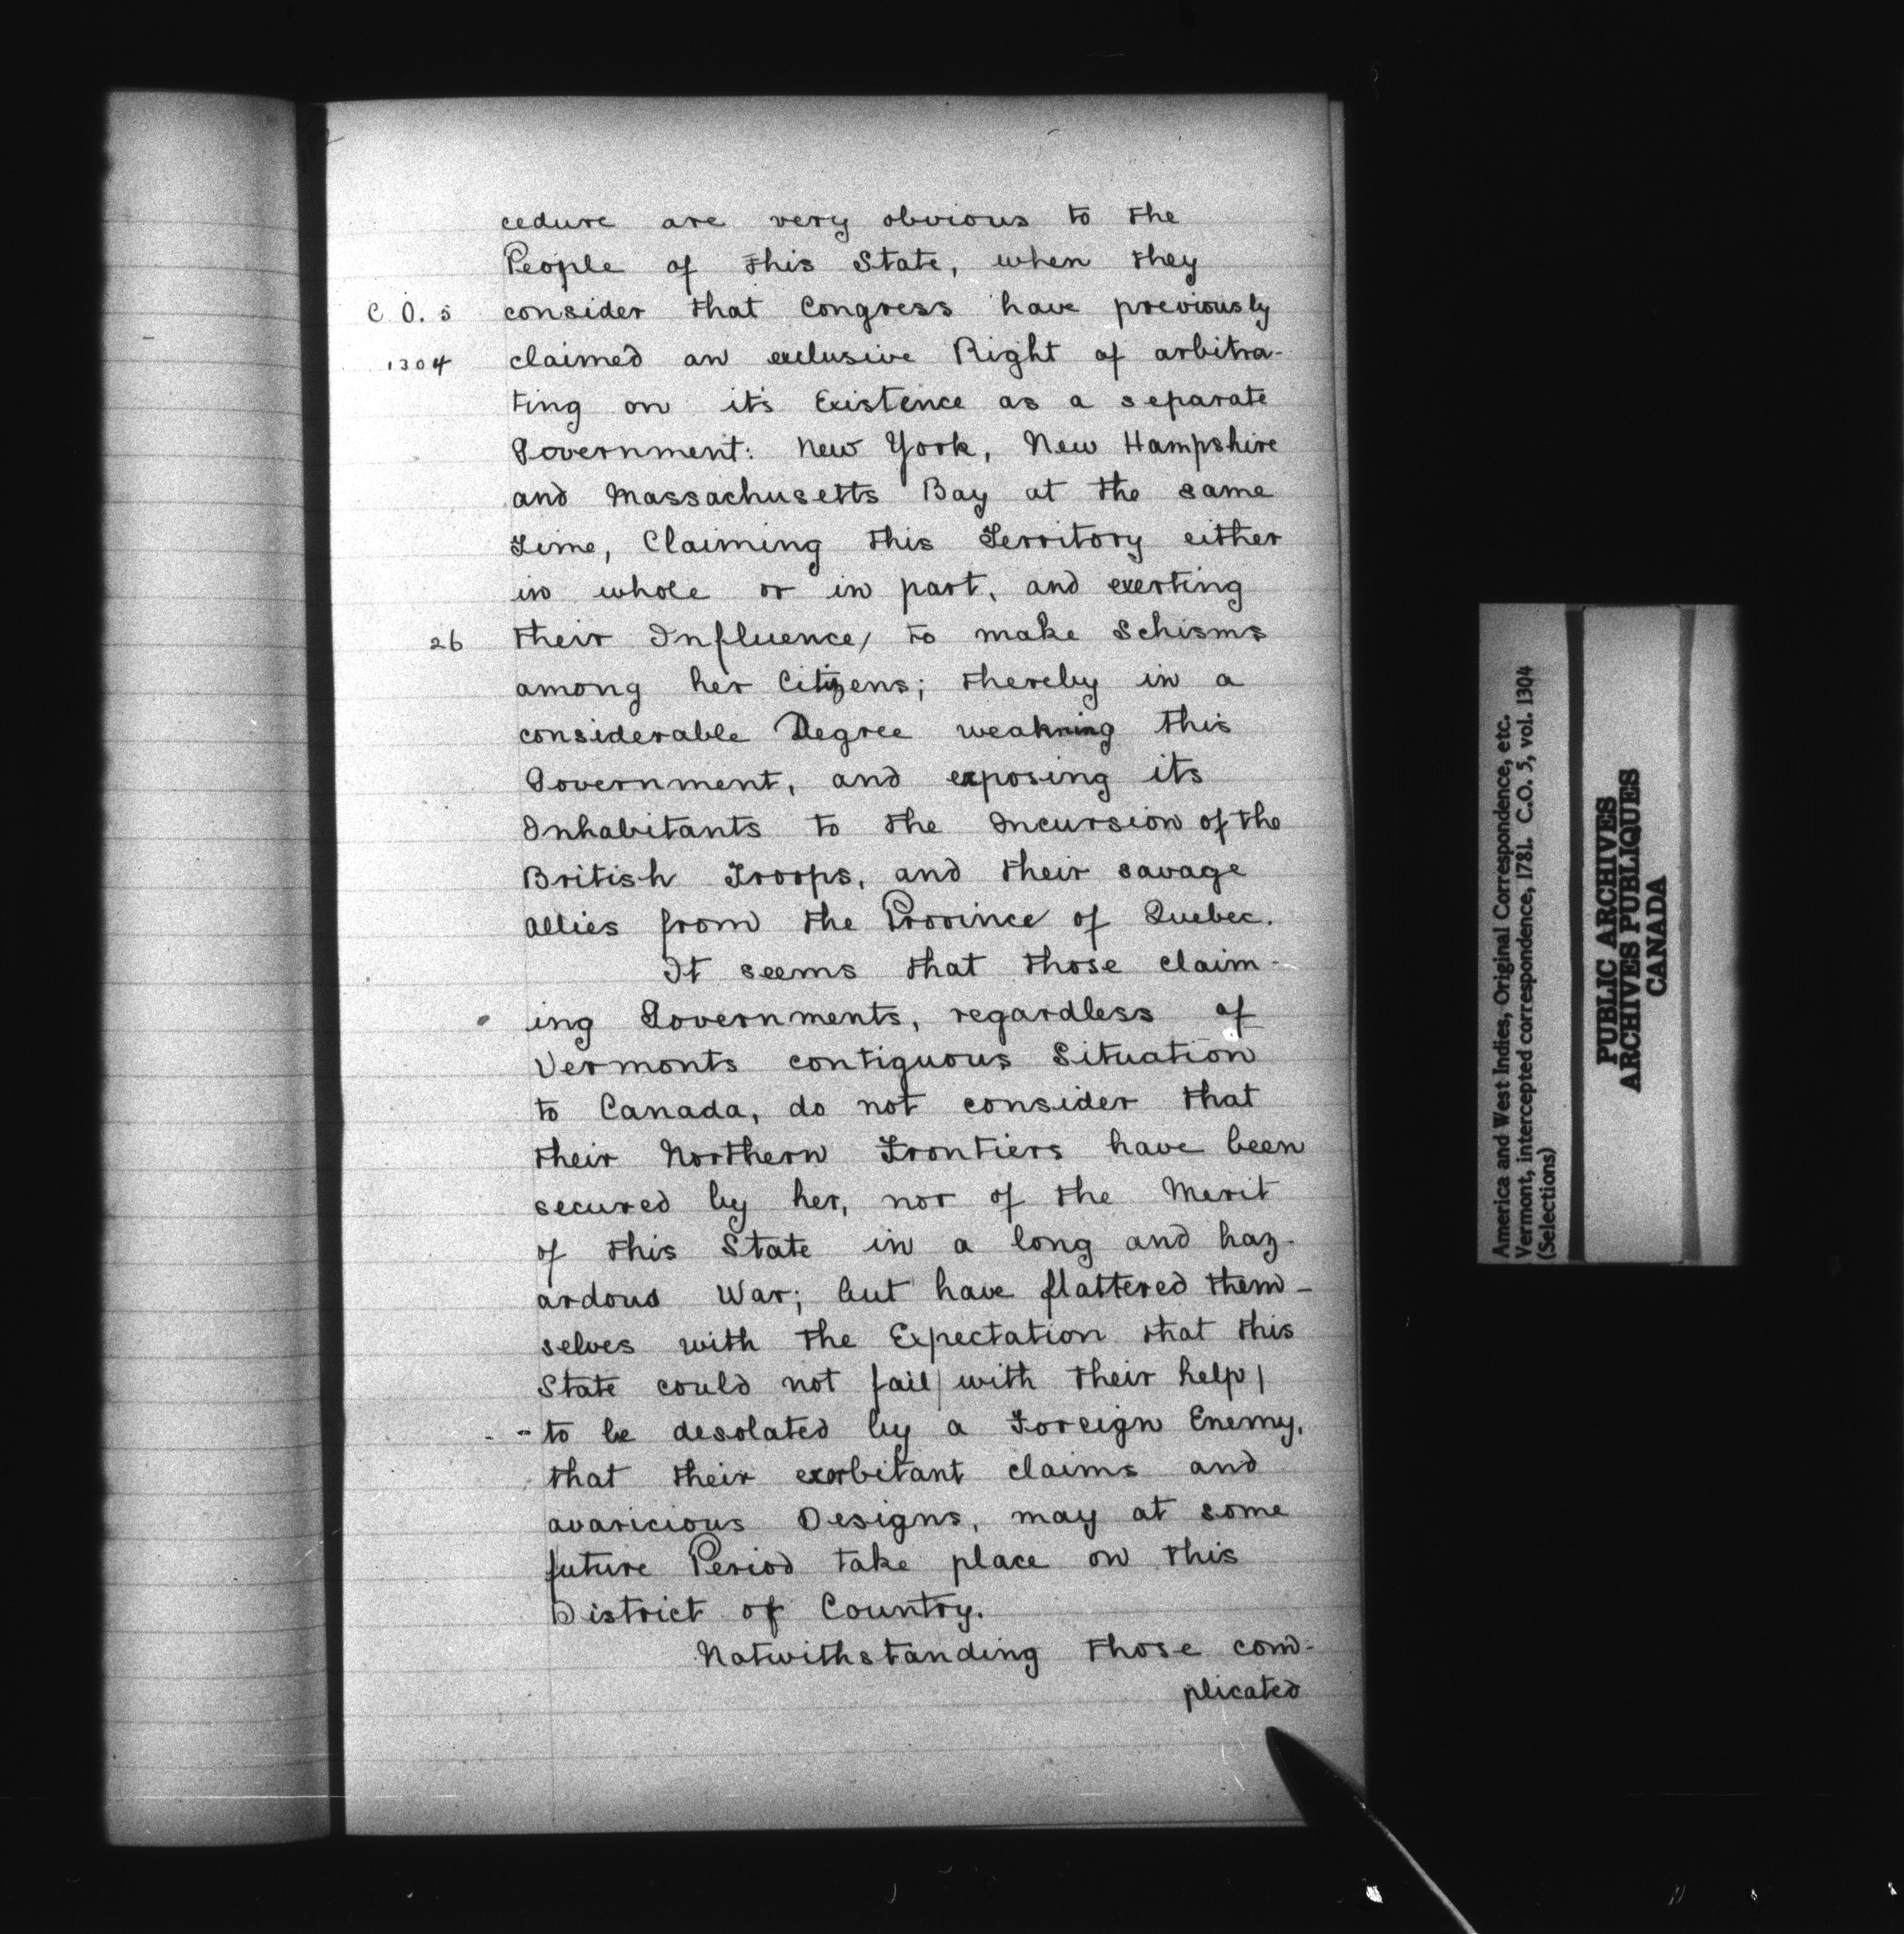 cedure are very obvious to the
People of this State, when they
C.O. 5 consider that Congress have previously
1304 claimed an exclusive Right of arbitra-
ting on it's Existence as a separate
Government: New York, New Hampshire
and Massachusetts Bay at the same
Time, Claiming this Territory either
in whole or in part, and exerting
26 their Influence, to make Schisms
among her Citizens; thereby in a
considerable Degree weakning this
Government, and exposing its
Inhabitants to the Incursion of the
British Troops, and their savage
allies from the Province of Quebec.
It seems that those claim-
ing Governments, regardless of
Vermonts contiguous Situation
to Canada, do not consider that
their Northern Frontiers have been
secured by her, nor of the Merit
of this State in a long and haz-
ardous War; but have flattered them-
selves with the Expectation that this
State could not fail/with their help/
to be desolated by a Foreign Enemy,
that their exorbitant claims and
avaricious Designs, may at some
future Period take place on this
District of Country.
Notwithstanding those com-
plicated
America and West Indies, Original Correspondence, etc.
Vermont, intercepted correspondence, 1781. C.O. 5, vol. 1304
(Selections)
PUBLIC ARCHIVES
ARCHIVES PUBLIQUES
CANADA